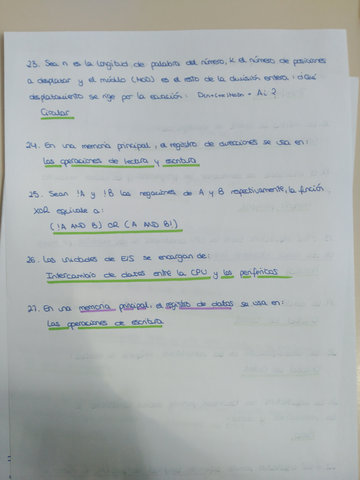 23. Sea n es la longitud de palabra del número, k el número de posiciones
a desplazar y el módulo (MOD) es el resto de la división entera. ¿Qué
desplazamiento se rige por la ecuación: = Ai ?
Circular
24. En una memoria principal, el registro de direcciones se usa en:
Las operaciones de lectura y escritura
25. Sean !A y !B las negaciones de A y B respectivamente, la función
XOR equivale a:
(!A AND B) OR (A AND B!)
26. Las unidades de E/S se encargan de:
Intercambio de datos entre la CPU y los periféricos
27. En una memoria principal, el registro de datos se usa en:
Las operaciones de escritura